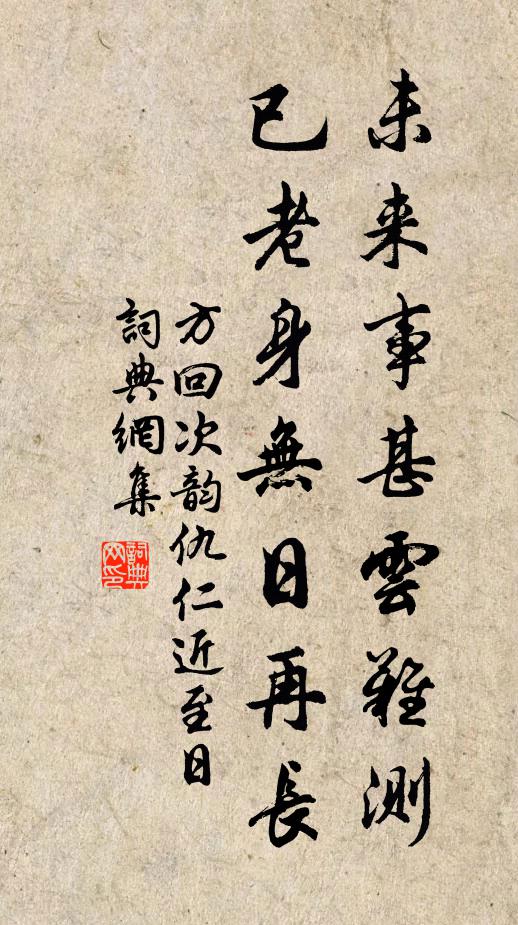 未来事甚雲難測
已老身無日再長
方回次韵仇仁近至日
詞典網集
詞典网印